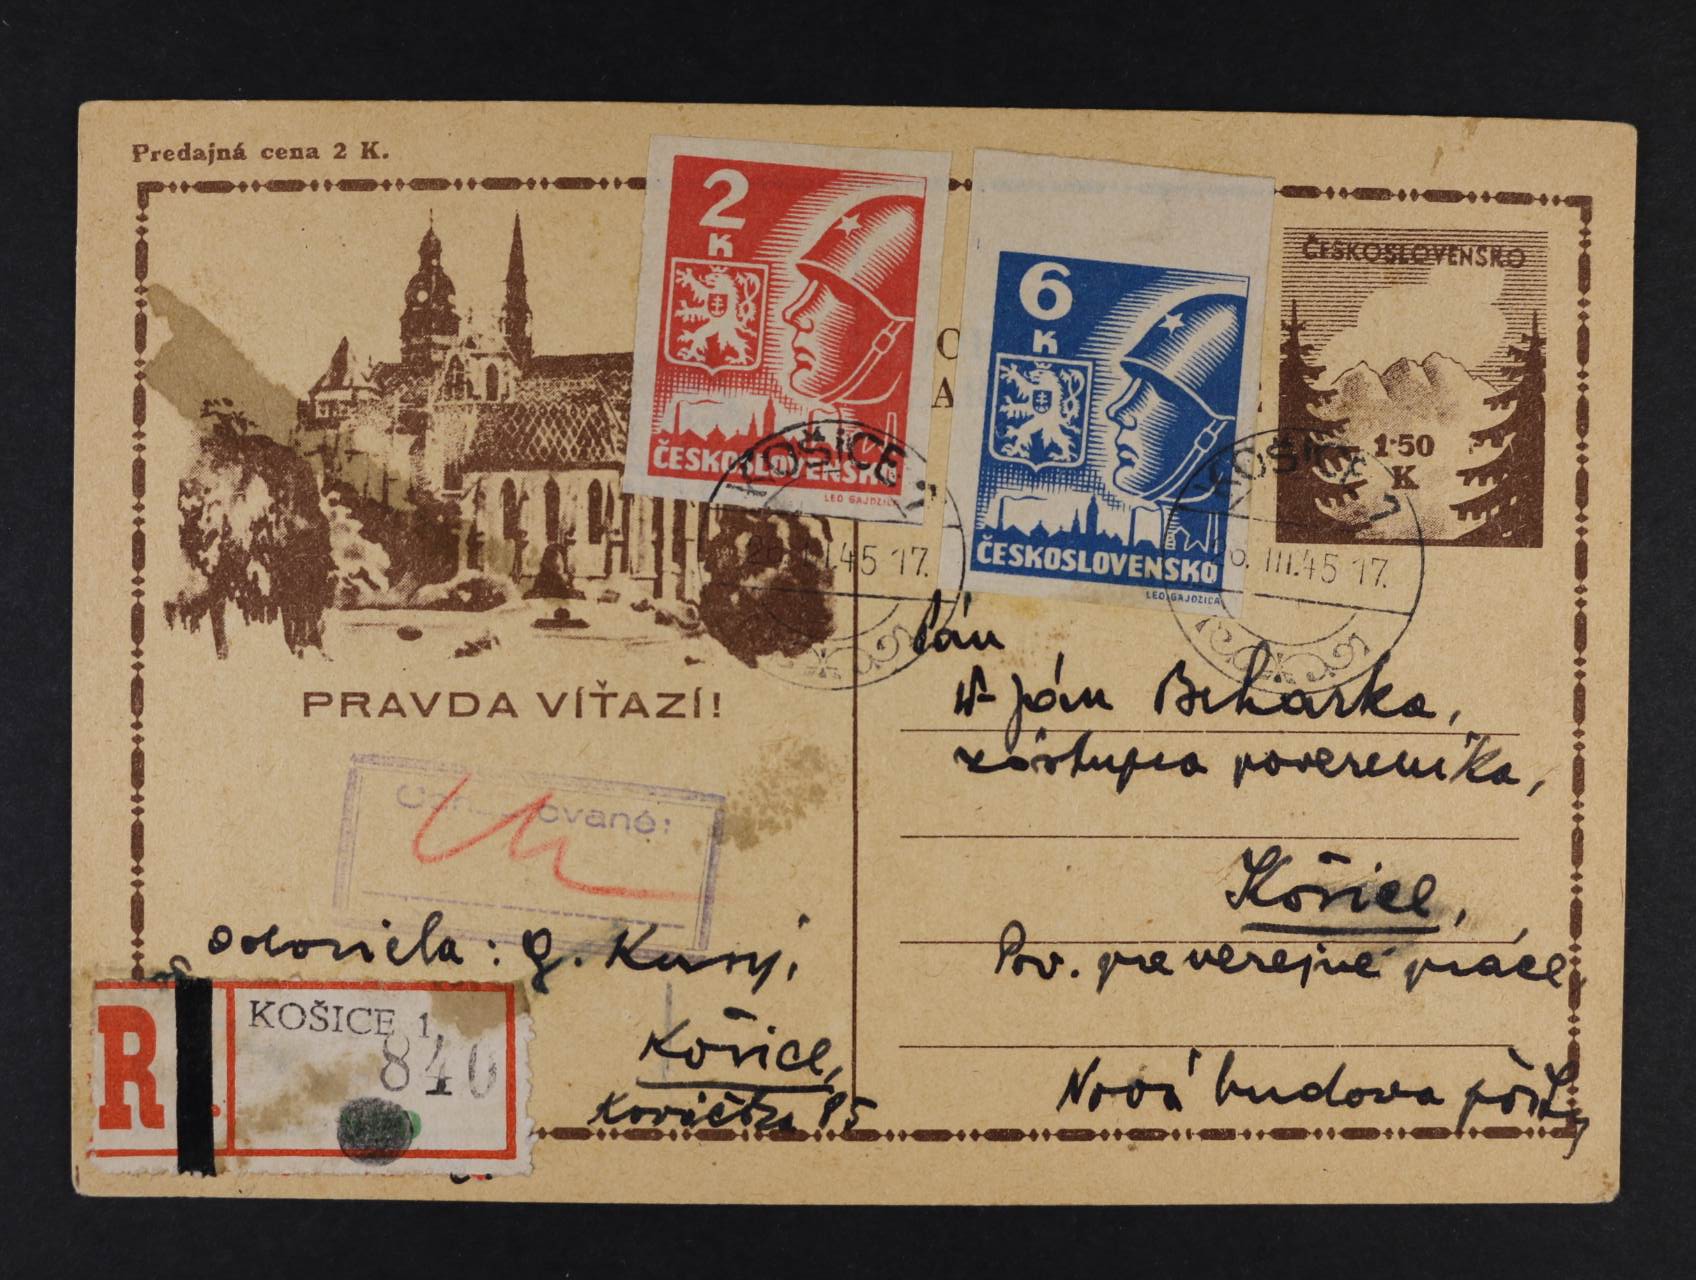 Predajná cena 2 K.
2
K
ČESKOSLOVENSKO
LEO GAJDZICA
6
K
ČESKOSLOVENSKO
LEO GAJDZICA
ČESKOSLOVENSKO
1·50
K
KOŠICE 1
26. III. 45 17.
KOŠICE 1
26. III. 45 17.
PRAVDA VÍŤAZÍ!
Cenzurované:
Pán
Ján Beharka,
zástupca poverenika,
Košice,
Pov. pre verejné práce,
Nová budova pošty
odosiela: G. Kusý,
Košice,
R
KOŠICE 1
840